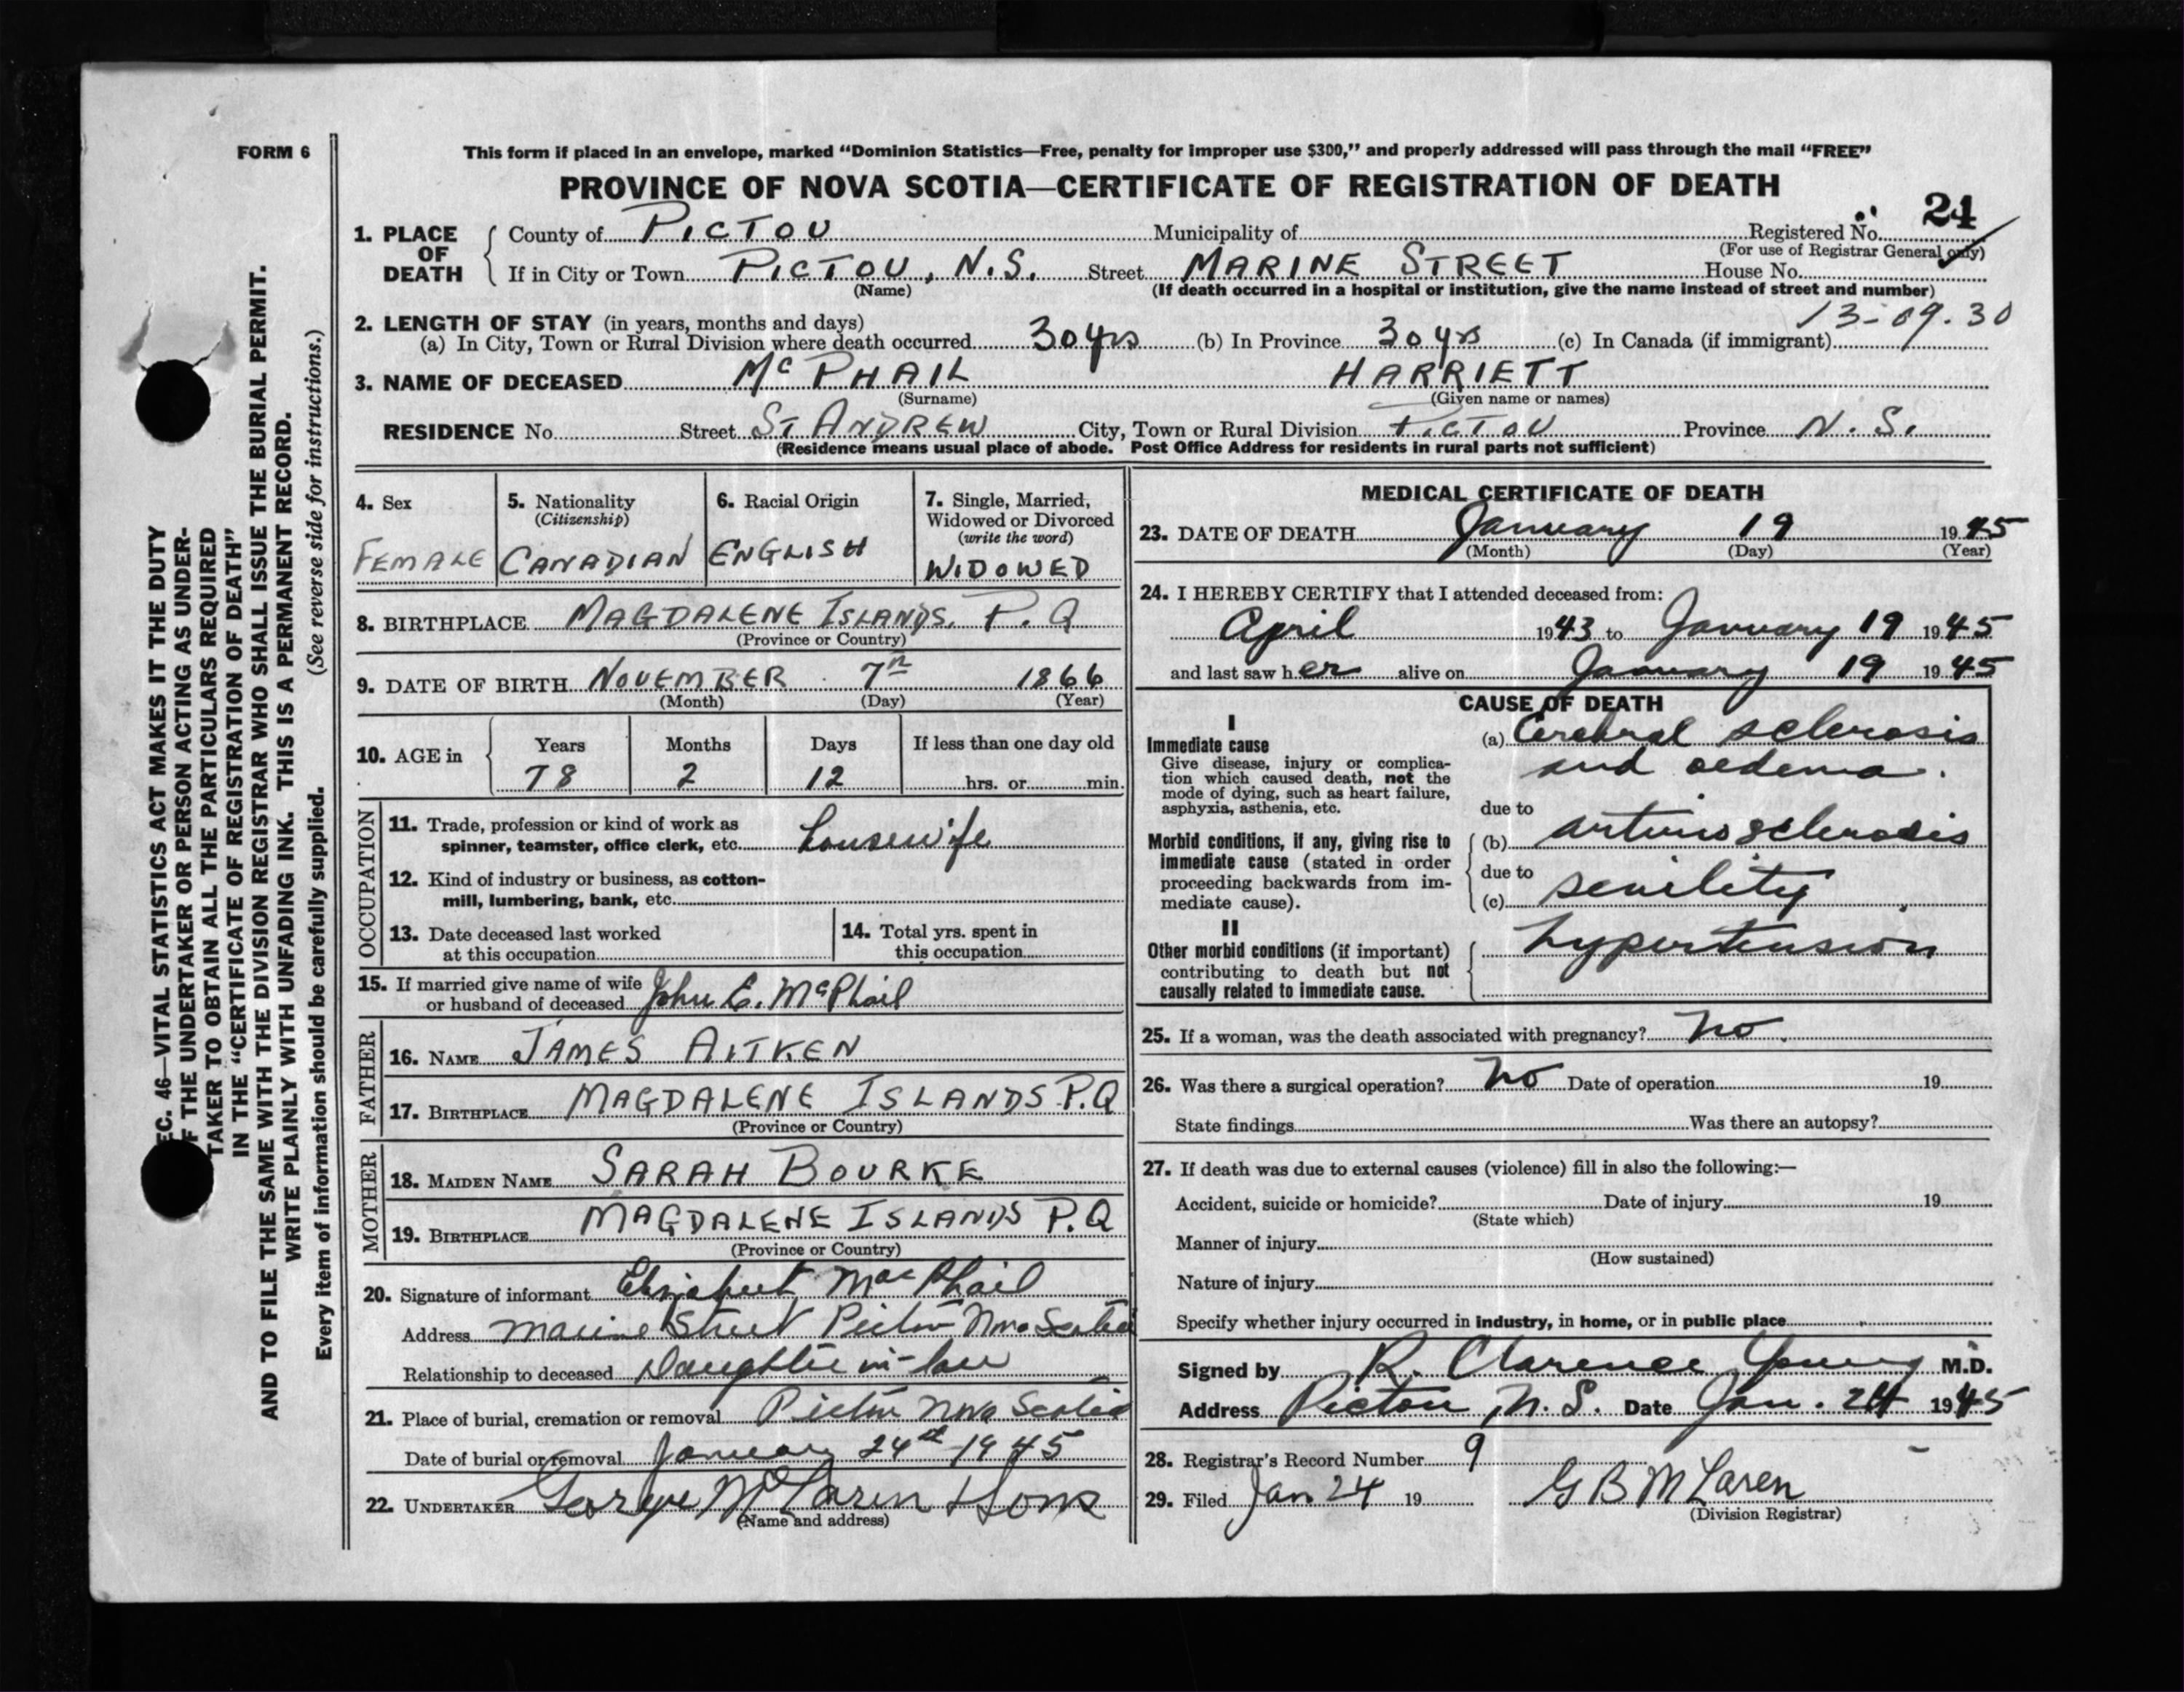 FORM 6
This form if placed in an envelope, marked “Dominion Statistics—Free, penalty for improper use $300,” and properly addressed will pass through the mail “FREE”
PROVINCE OF NOVA SCOTIA—CERTIFICATE OF REGISTRATION OF DEATH
1. PLACE OF DEATH County of PICTOU Municipality of Registered No. 24
(For use of Registrar General only)
If in City or Town PICTOU, N.S. Street MARINE STREET House No.
(Name) (If death occurred in a hospital or institution, give the name instead of street and number)
13-09.30
2. LENGTH OF STAY (in years, months and days)
(a) In City, Town or Rural Division where death occurred 30 yrs (b) In Province 30 yrs (c) In Canada (if immigrant)
3. NAME OF DECEASED McPHAIL HARRIETT
(Surname) (Given name or names)
RESIDENCE No. Street ST ANDREW City, Town or Rural Division PICTOU Province N.S.
(Residence means usual place of abode. Post Office Address for residents in rural parts not sufficient)
4. Sex FEMALE
5. Nationality (Citizenship) CANADIAN
6. Racial Origin ENGLISH
7. Single, Married, Widowed or Divorced (write the word) WIDOWED
8. BIRTHPLACE MAGDALENE ISLANDS, P.Q
(Province or Country)
9. DATE OF BIRTH NOVEMBER 7th 1866
(Month) (Day) (Year)
10. AGE in Years Months Days If less than one day old
78 2 12 hrs. or min.
OCCUPATION
11. Trade, profession or kind of work as
spinner, teamster, office clerk, etc. housewife
12. Kind of industry or business, as cotton-
mill, lumbering, bank, etc.
13. Date deceased last worked
at this occupation
14. Total yrs. spent in
this occupation
15. If married give name of wife
or husband of deceased John E. McPhail
FATHER
16. NAME JAMES AITKEN
17. BIRTHPLACE MAGDALENE ISLANDS P.Q
(Province or Country)
MOTHER
18. MAIDEN NAME SARAH BOURKE
19. BIRTHPLACE MAGDALENE ISLANDS P.Q
(Province or Country)
20. Signature of informant MacPhail
Address Marine Street Pictou Nova Scotia
Relationship to deceased Daughter in-law
21. Place of burial, cremation or removal Pictou Nova Scotia
Date of burial or removal January 24th 1945
22. UNDERTAKER George McLaren & Sons
(Name and address)
MEDICAL CERTIFICATE OF DEATH
23. DATE OF DEATH January 19 1945
(Month) (Day) (Year)
24. I HEREBY CERTIFY that I attended deceased from:
April 1943 to January 19 1945
and last saw her alive on January 19 1945
CAUSE OF DEATH
I
Immediate cause
Give disease, injury or complica-
tion which caused death, not the
mode of dying, such as heart failure,
asphyxia, asthenia, etc.
(a) Cerebral sclerosis
and oedema.
due to
Morbid conditions, if any, giving rise to
immediate cause (stated in order
proceeding backwards from im-
mediate cause).
(b) arteriosclerosis
due to
(c) senility
II
Other morbid conditions (if important)
contributing to death but not
causally related to immediate cause.
hypertension
25. If a woman, was the death associated with pregnancy? no
26. Was there a surgical operation? no Date of operation 19
State findings Was there an autopsy?
27. If death was due to external causes (violence) fill in also the following:—
Accident, suicide or homicide? Date of injury 19
(State which)
Manner of injury
(How sustained)
Nature of injury
Specify whether injury occurred in industry, in home, or in public place
Signed by R. Clarence Young M.D.
Address Pictou, N.S. Date Jan. 24 1945
28. Registrar's Record Number 9
29. Filed Jan 24 19 G B McLaren
(Division Registrar)
EC. 46—VITAL STATISTICS ACT MAKES IT THE DUTY
F THE UNDERTAKER OR PERSON ACTING AS UNDER-
TAKER TO OBTAIN ALL THE PARTICULARS REQUIRED
IN THE “CERTIFICATE OF REGISTRATION OF DEATH”
AND TO FILE THE SAME WITH THE DIVISION REGISTRAR WHO SHALL ISSUE THE BURIAL PERMIT.
WRITE PLAINLY WITH UNFADING INK. THIS IS A PERMANENT RECORD.
Every item of information should be carefully supplied. (See reverse side for instructions.)